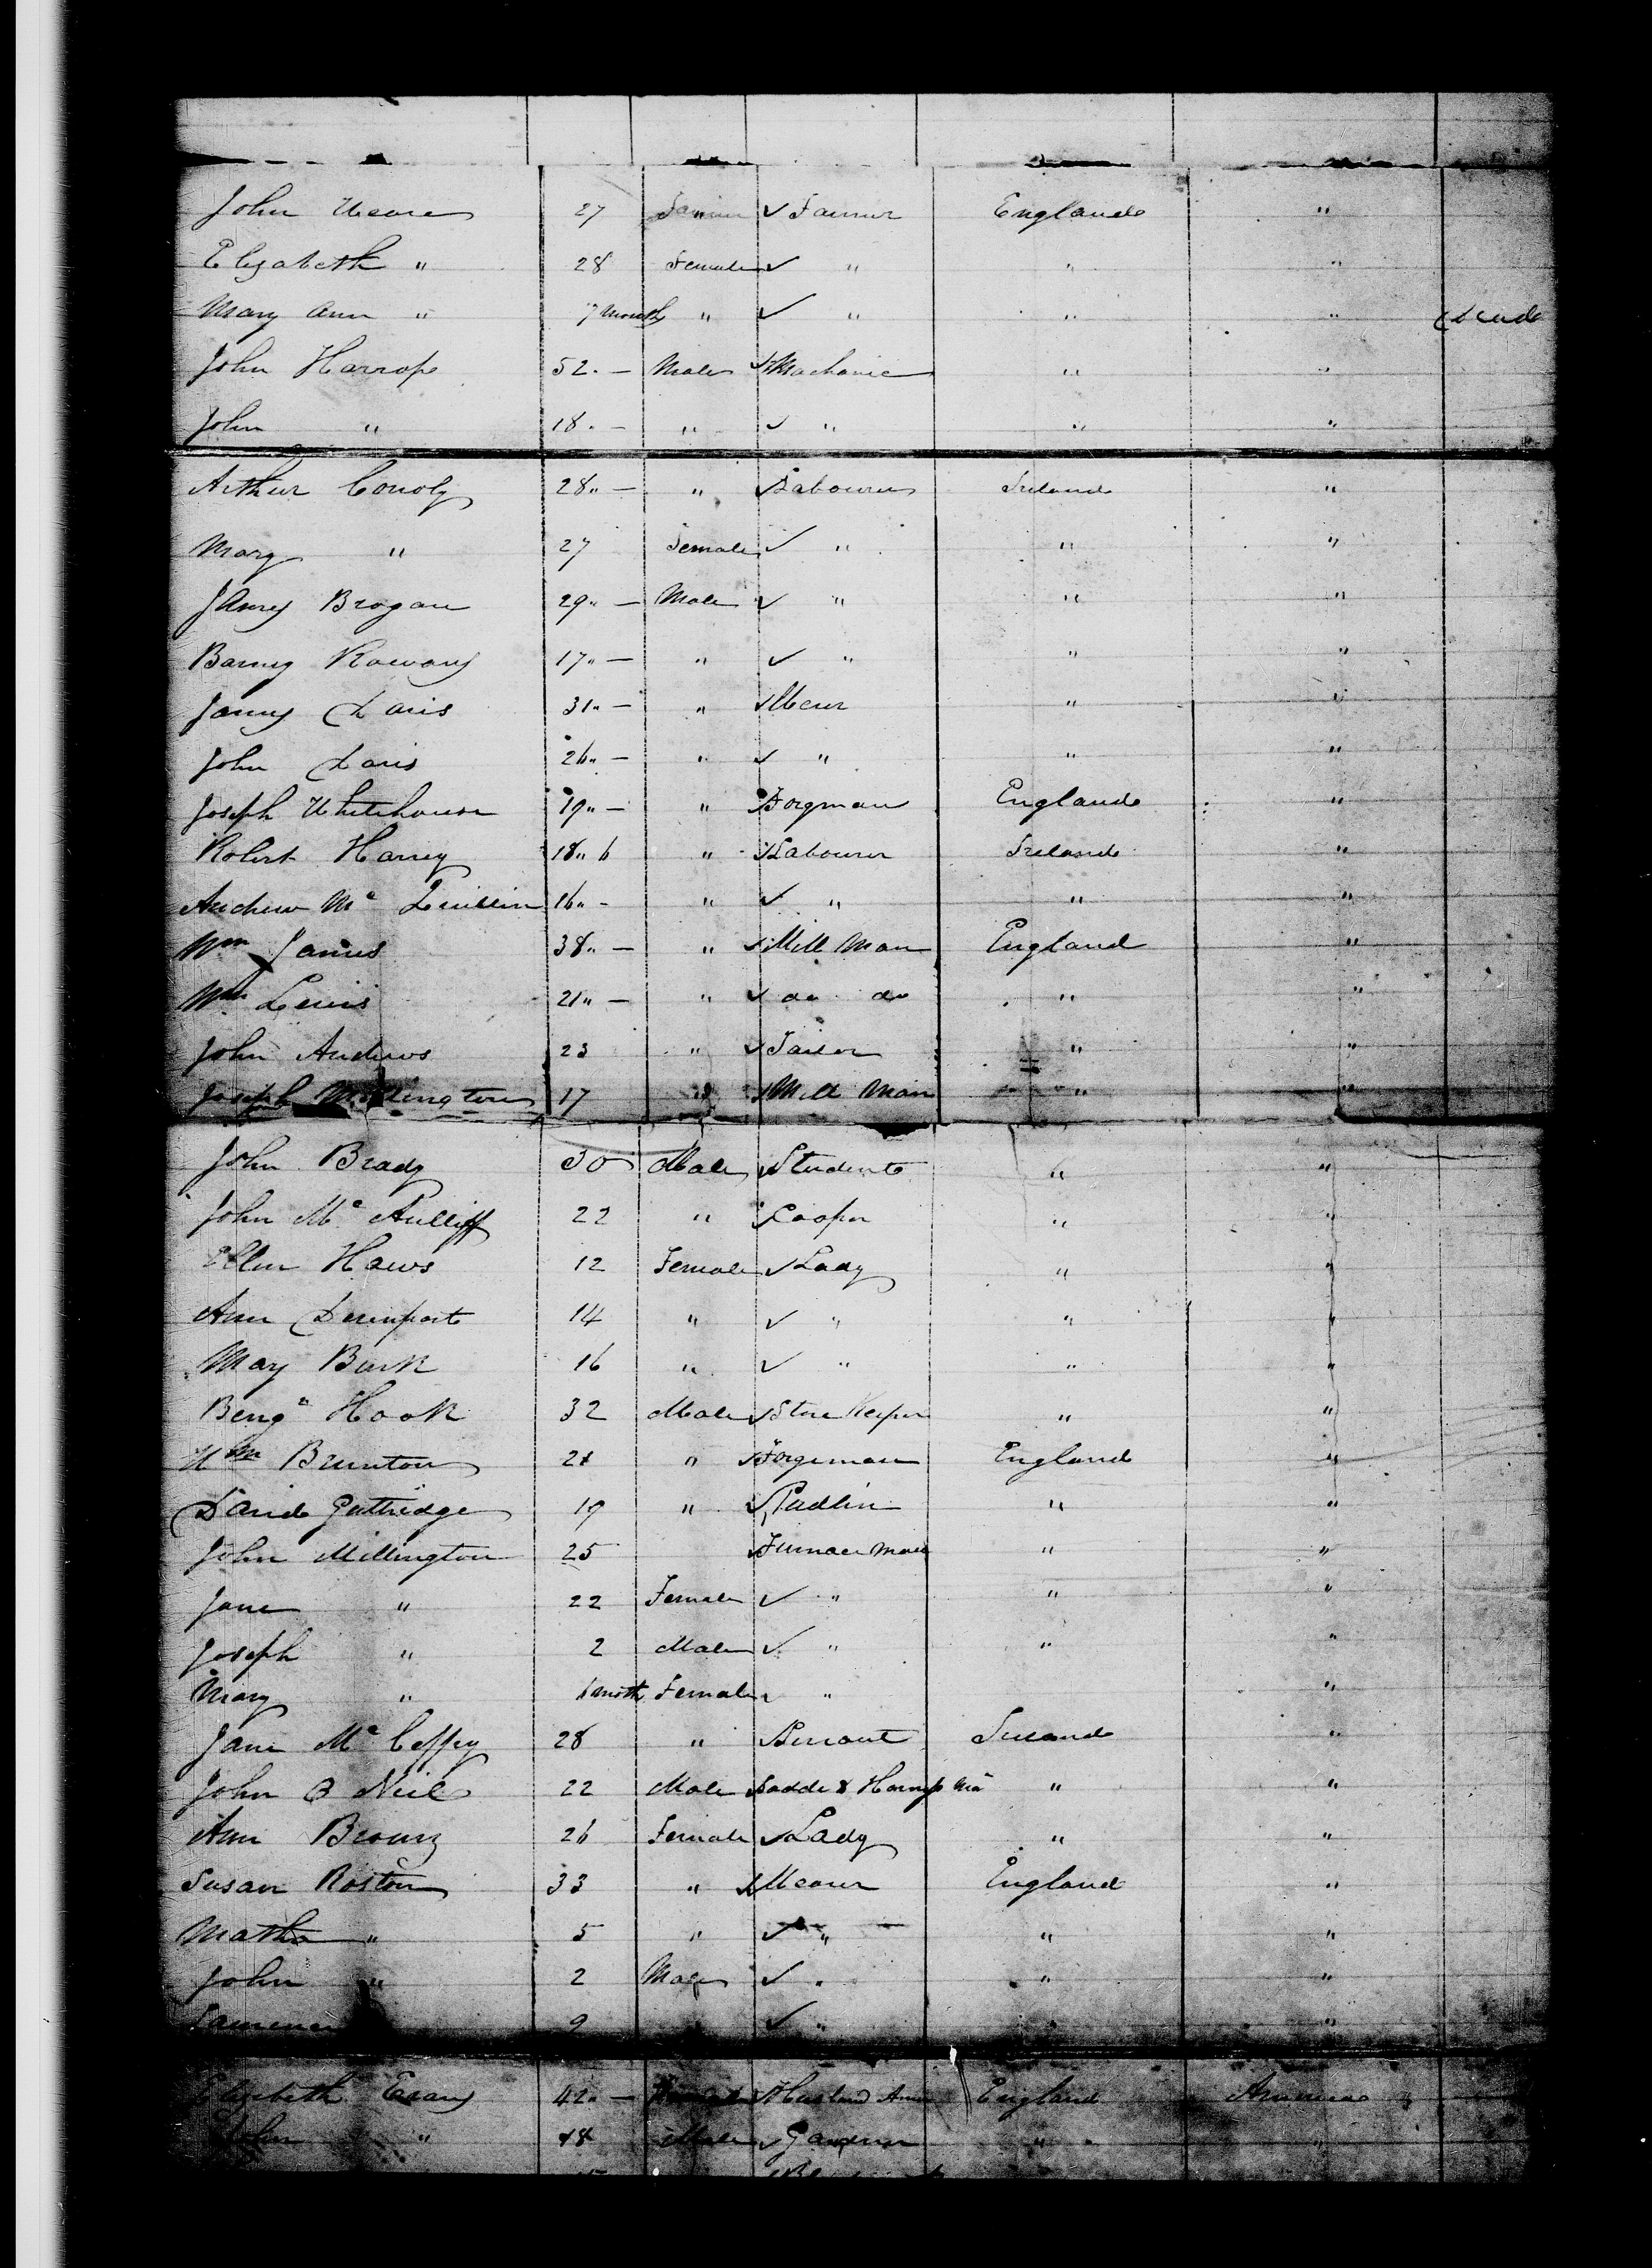 John 27 Farmer England "
Elizabeth " 28 Female " " "
Mary Ann " 7 Month " " " "
John Harrop 52. — Male Machanic " "
John " 18. — " " " "
Arthur Conoly 28 " — " Labourer Ireland "
Mary " 27 Female " " "
James Brogan 29 " — Male " " "
Barney 17 " — " " " "
James Davis 31 " — " " "
John Davis 26 " — " " " "
Joseph Whitehouse 19 " — " Forgman England "
Robert Harvey 18 " 6 " Labourer Ireland "
Andrew Mc Quillin 16 " - " " " "
Wm James 38 " — " Mill Man England "
Wm Lewis 21 " — " do do " "
John Andrews 23 " " "
Joseph Millington 17 " Mill Man " "
John Brady 30 Male Student " "
John Mc Aulliff 22 " Cooper " "
Ellen Haws 12 Female Lady " "
Ann Devenport 14 " " " "
Mary Burk 16 " " " "
Benjn Hook 32 Male Store Keeper " "
Wm Brunton 21 " Forgeman England "
David Guttridge 19 " " "
John Millington 25 Furnace Man " "
Jane " 22 Female " " "
Joseph " 2 Male " " "
Mary " Female " "
Jane Mc Caffey 28 " Servant Ireland "
John O Neil 22 Male " "
Ann 26 Female Lady " "
Susan 33 " England "
Martha " 5 " " " "
John " 2 Male " " "
9 " " "
Elizabeth Evans 42 " — England America "
John " 18 Male " "